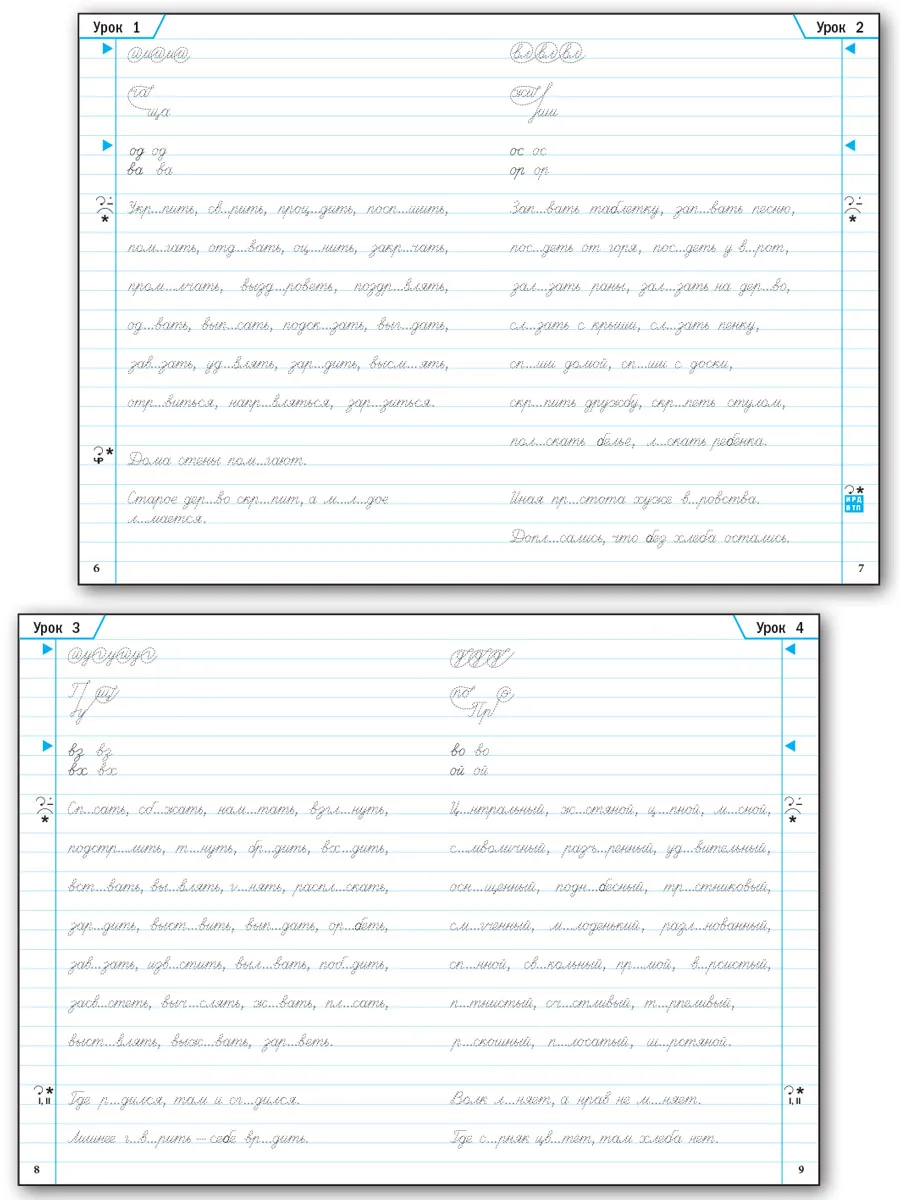 Урок 1
шишиши
ча
ща
од од
ва ва
Укр...пить, св...рить, прощ...дить, посп...шить,
пом...гать, отд...вать, оц...нить, закр...чать,
пром...лчать, вызд...роветь, поздр...влять,
од...вать, вып...сать, подск...зать, выг...дать,
зав...зать, уд...влять, зар...дить, высм...ять,
отр...виться, напр...вляться, зар...зиться.
Дома стены пом...гают.
Старое дер...во скр...пит, а м...л...дое
л...мается.
6
Урок 2
вл вл вл
жи
ши
ос ос
ор ор
Зап...вать таблетку, зап...вать песню,
пос...деть от горя, пос...деть у в...рот,
зал...зать раны, зал...зать на дер...во,
сл...зать с крыши, сл...зать пенку,
сп...ши домой, сп...ши с доски,
скр...пить дружбу, скр...петь стулом,
пол...скать белье, л...скать ребенка.
Иная пр...стота хуже в...ровства.
Допл...сались, что без хлеба остались.
ИРД
ВТП
7
Урок 3
П щ
у
вз вз
вх вх
Сп...сать, сб...жать, нам...тать, взгл...нуть,
подстр...лить, т...нуть, бр...дить, вх...дить,
вст...вать, вы...влять, г...нять, распл...скать,
зар...дить, выст...вить, вып...дать, ор...беть,
зав...зать, изв...стить, выл...вать, поб...дить,
засв...стеть, выч...слять, ж...вать, пл...сать,
выст...влять, выж...вать, зар...веть.
I, II
Где р...дился, там и сг...дился.
Лишнее г...в...рить – себе вр...дить.
8
Урок 4
по о
Пр
во во
ой ой
Ц...нтральный, ж...стяной, ц...пной, м...сной,
с...мволичный, разъ...ренный, уд...вительный,
осн...щенный, подн...бесный, тр...стниковый,
см...гченный, м...лоденький, разл...нованный,
сп...нной, св...кольный, пр...мой, в...рсистый,
п...тнистый, сч...стливый, т...рпеливый,
р...скошный, п...лосатый, ш...рстяной.
I, II
Волк л...няет, а нрав не м...няет.
Где с...рняк цв...тет, там хлеба нет.
9